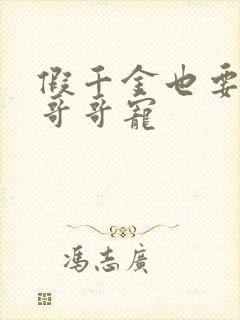 假千金也要
哥哥寵
馮志廣